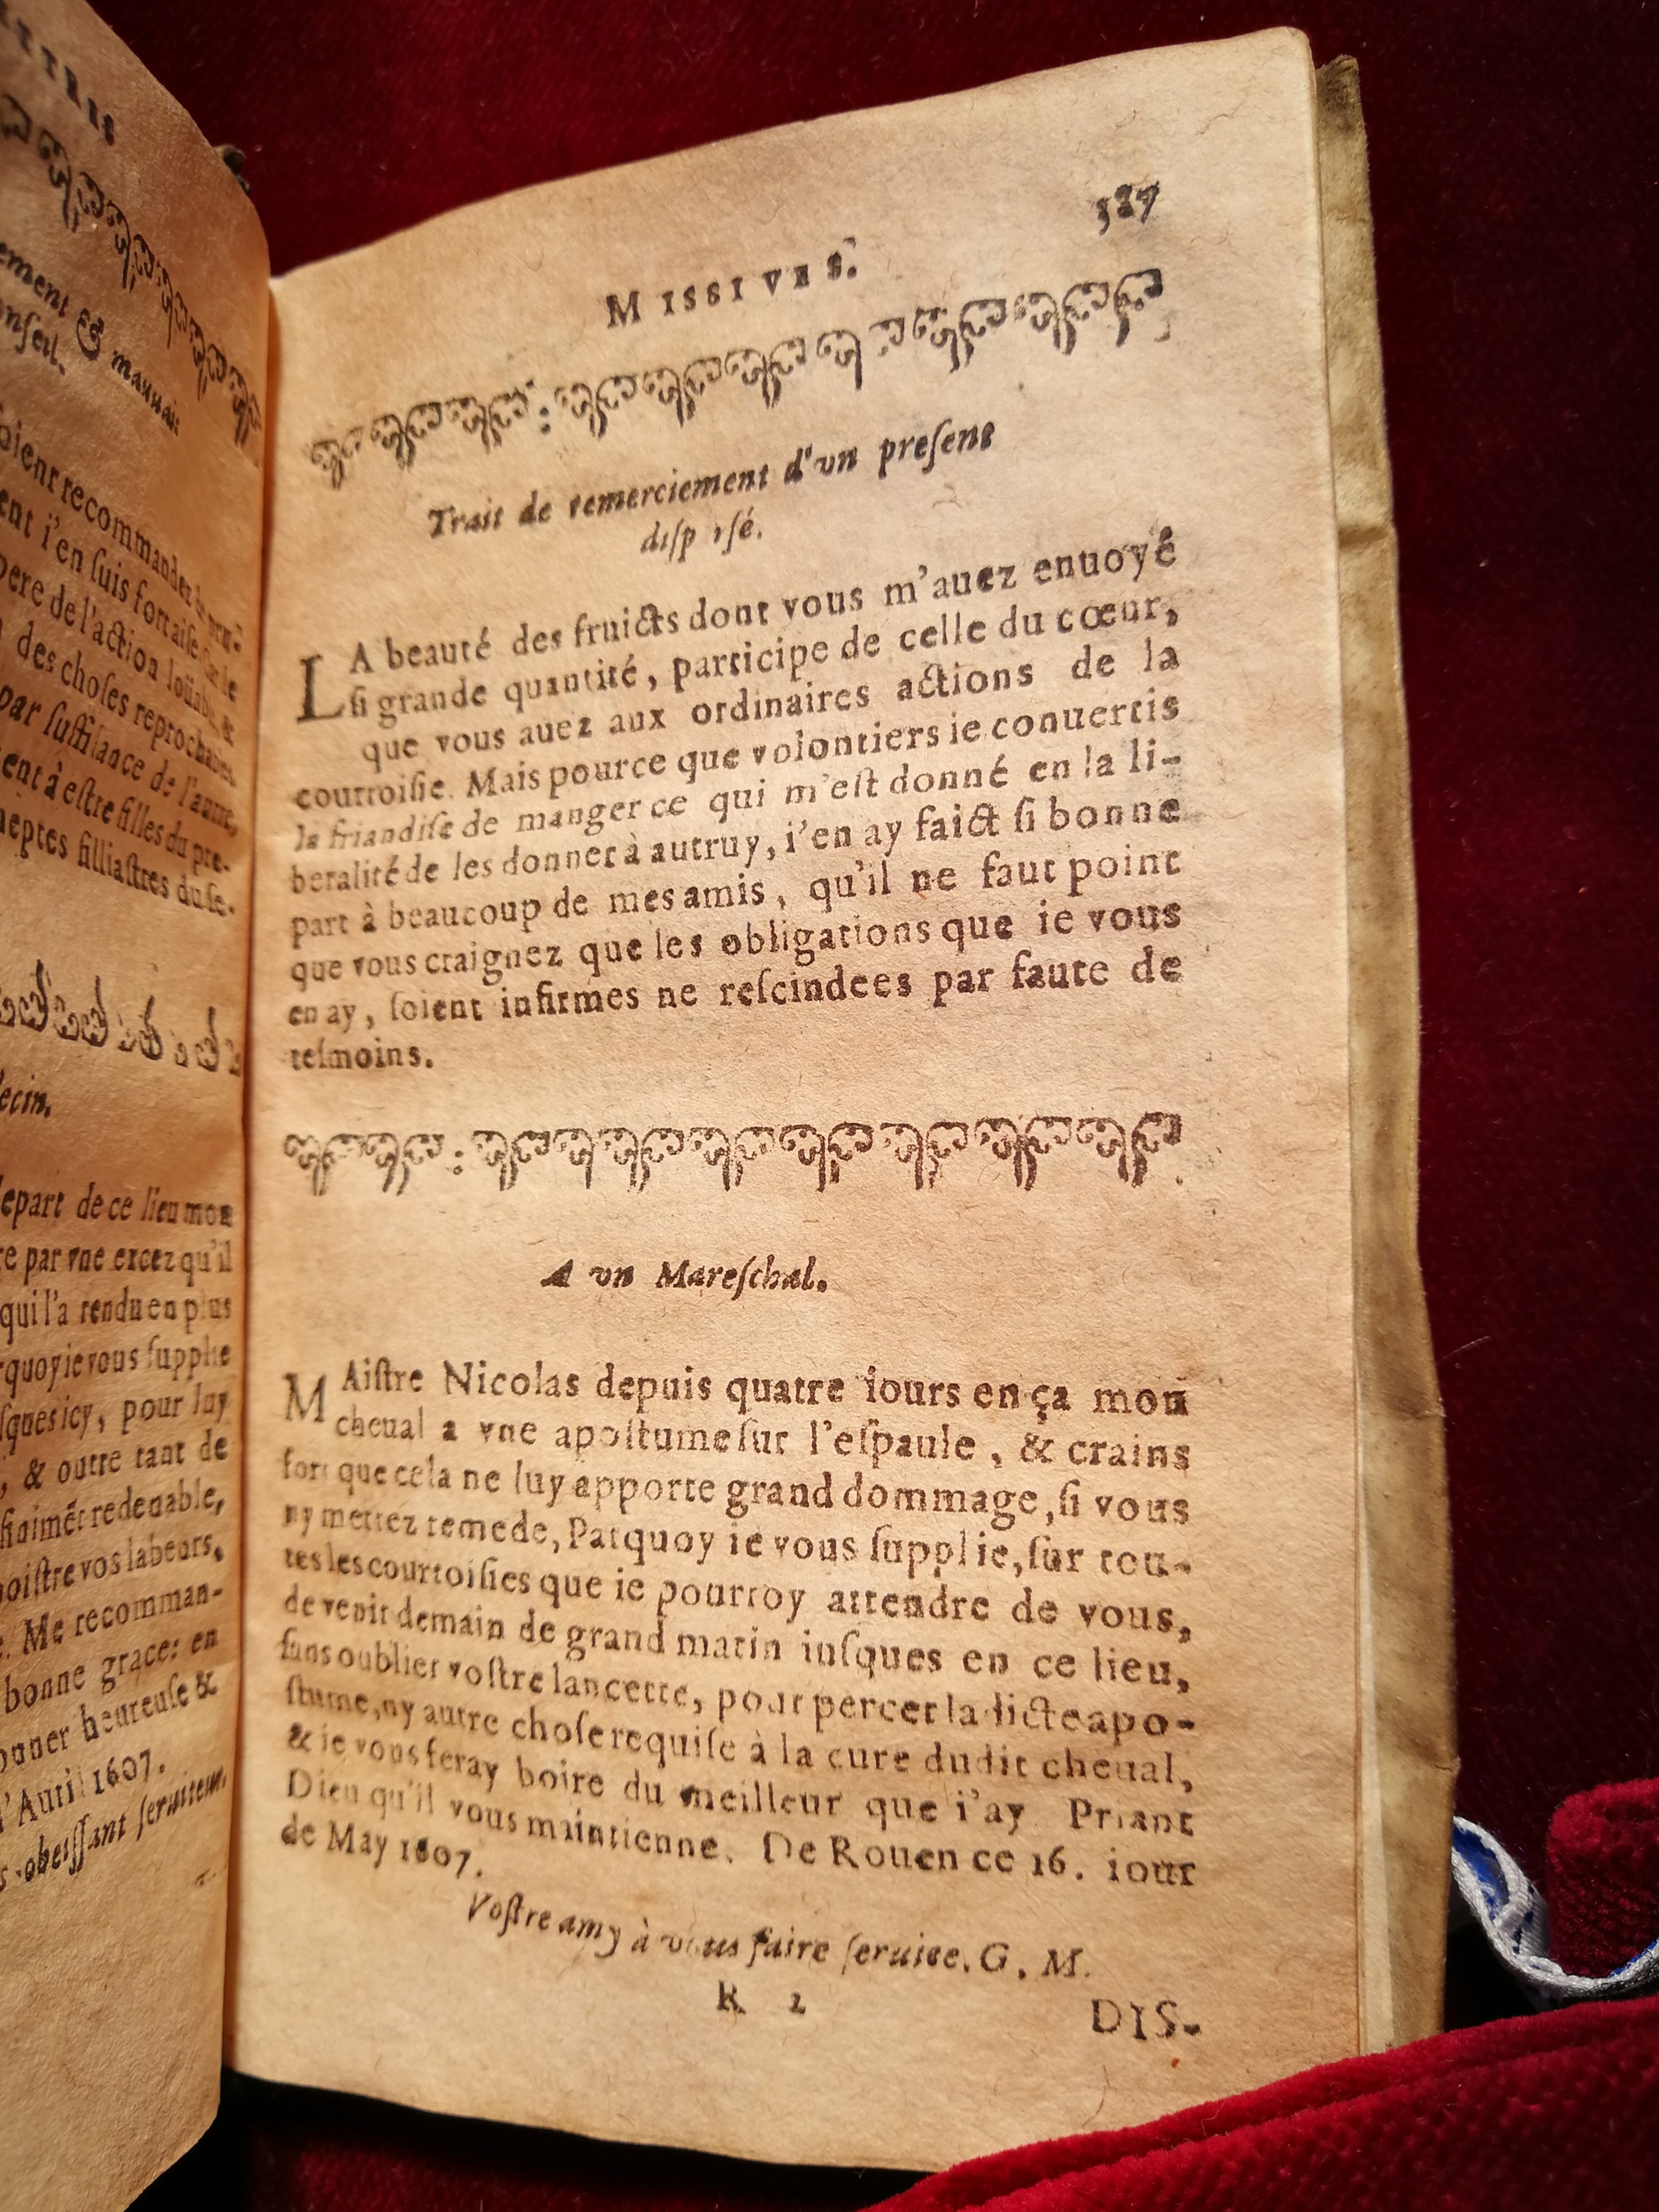 ement & mauuais
onſeil.
recommandez
ent i'en ſuis fort aiſe, ſur le
pere de l'action loüable, &
des choſes reprochables
par ſuffiſance de l'autre,
ent à eſtre filles du pre-
neptes filliaſtres du ſe-
ecin.
depart de ce lieu mon
re par vne excez qu'il
qui l'a rendu en plus
rquoy ie vous ſupplie
ſques icy, pour luy
, & outre tant de
redeuable,
noiſtre vos labeurs,
. Me recomman-
bonne grace: en
onner heureuſe &
d'Auril 1607.
s-obeiſſant ſeruiteur,
MISSIVES.
387
Trait de remerciement d'vn preſent
LA beauté des fruicts dont vous m'auez enuoyé
ſi grande quantité, participe de celle du cœur,
que vous auez aux ordinaires actions de la
courtoiſie. Mais pource que volontiers ie conuertis
la friandiſe de manger ce qui m'eſt donné en la li-
beralité de les donner à autruy, i'en ay faict ſi bonne
part à beaucoup de mes amis, qu'il ne faut point
que vous craignez que les obligations que ie vous
en ay, ſoient infirmes ne reſcindees par faute de
teſmoins.
A vn Mareſchal.
MAiſtre Nicolas depuis quatre iours en ça mon
cheual a vne apoſtume ſur l'eſpaule, & crains
fort que cela ne luy apporte grand dommage, ſi vous
ny mettez remede, Parquoy ie vous ſupplie, ſur tou-
tes les courtoiſies que ie pourroy attendre de vous,
de venir demain de grand matin iuſques en ce lieu,
ſans oublier voſtre lancette, pour percer la dicte apo-
ſtume, ny autre choſe requiſe à la cure dudit cheual,
& ie vous feray boire du meilleur que i'ay Priant
Dieu qu'il vous maintienne. De Rouen ce 16. iour
de May 1607.
Voſtre amy à vous faire ſeruice. G. M.
R 2
DIS-